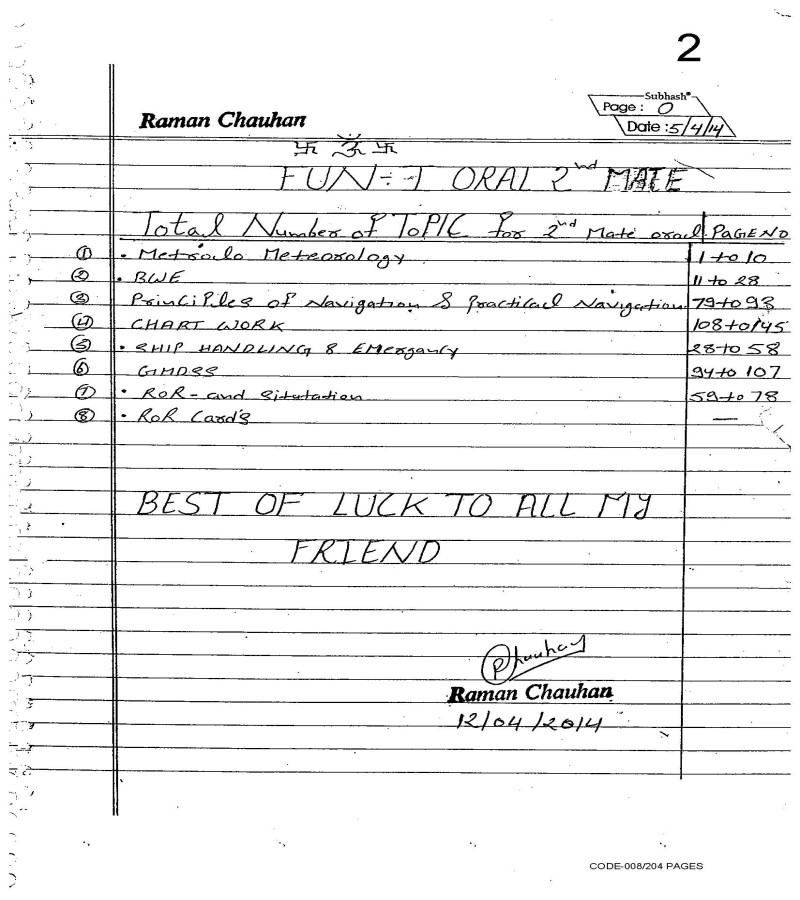 2
Subhash
Page : 0
Raman Chauhan
Date : 5/4/14
卐 ॐ 卐
FUN:-I ORAL 2nd MATE
Total Number of ToPIC for 2nd Mate oral PAGE NO
① • Metrolo Meteorology 1 to 10
② • BWE 11 to 28
③ PrinCiPles of Navigation & Practical Navigation 79 to 93
④ CHART WORK 108 to 145
⑤ • SHIP HANDLING & EMergancy 28 to 58
⑥ GMDSS 94 to 107
⑦ • RoR - and Situtation 59 to 78
⑧ • RoR Card's —
BEST OF LUCK TO ALL MY
FRIEND
RChauhan
Raman Chauhan
12/04/2014
CODE-008/204 PAGES